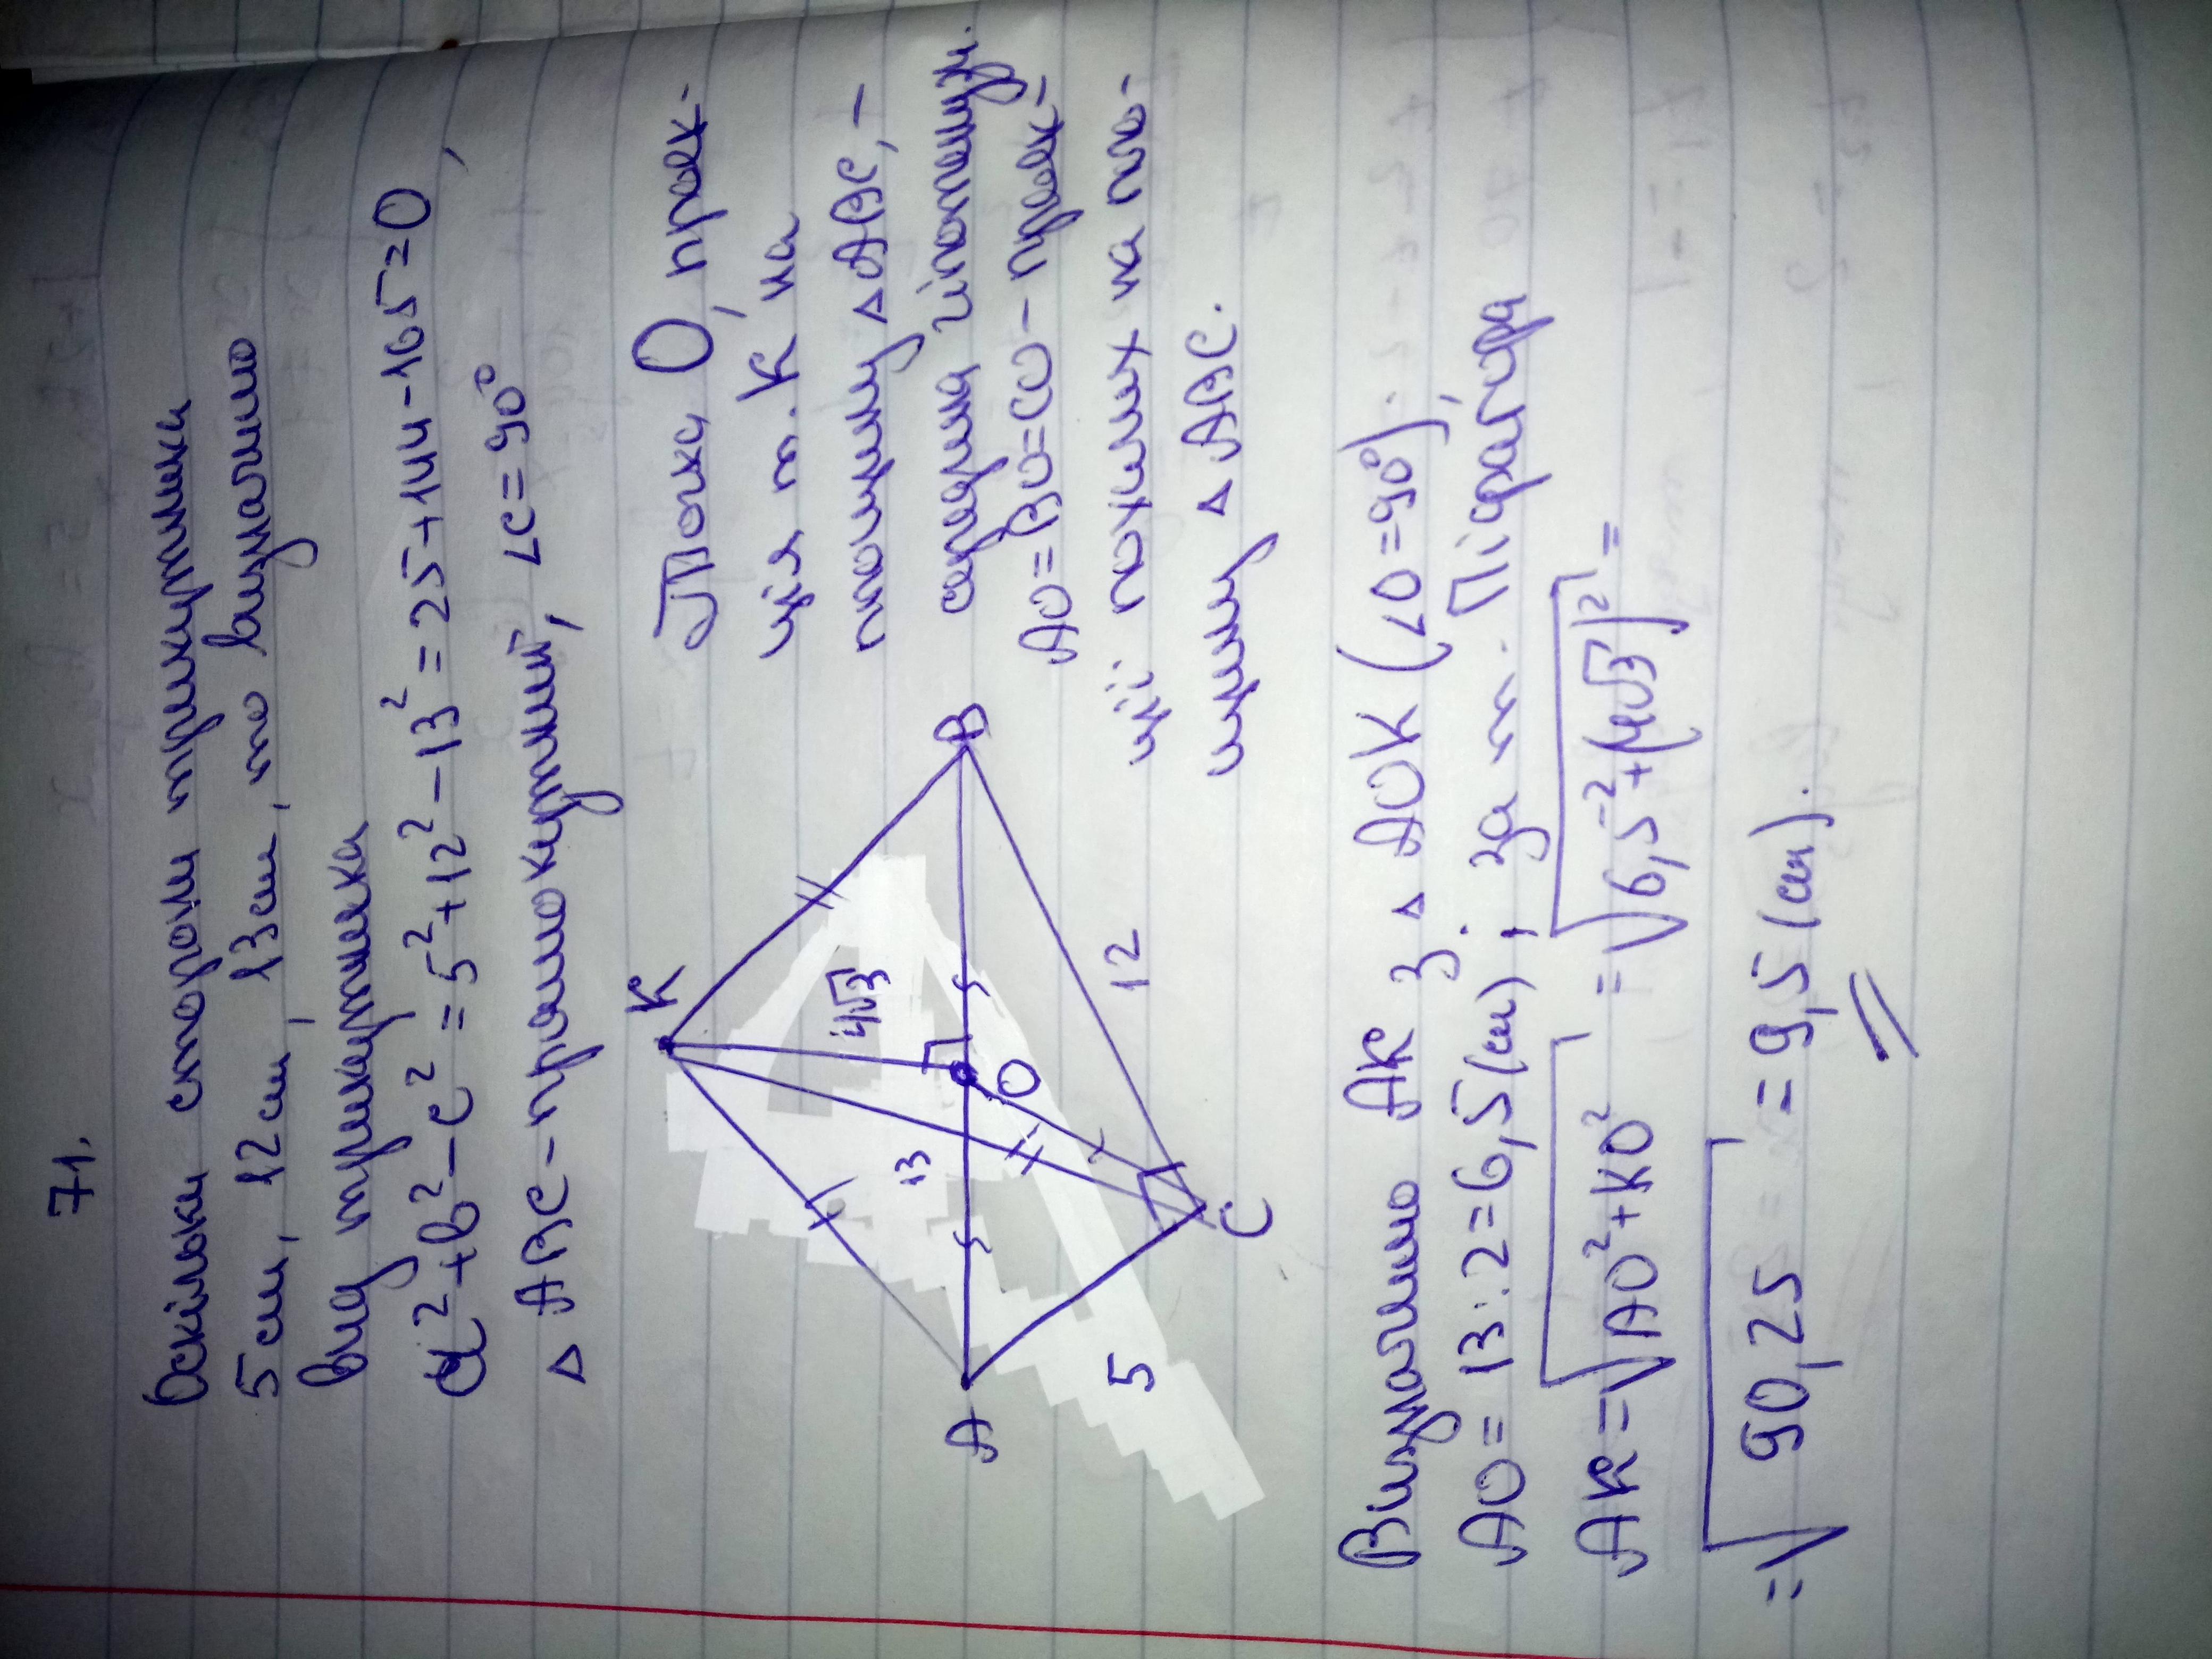 71.
Оскільки сторони трикутника
5 см, 12 см, 13 см, то визначимо
вид трикутника
a²+b²-c² = 5²+12²-13² = 25+144-165=0,
△ ABC - прямокутний, ∠C=90°
K
4√3
13
A
B
O
5
12
C
Точка O, проек-
ція т. K на
площину △ABC, -
середина гіпотенузи.
AO=BO=CO - проек-
ції похилих на пло-
щину △ ABC.
Визначимо AK з △ AOK (∠O=90°),
AO= 13:2=6,5(см); за т. Піфагора
AK=√AO²+KO² =√6,5²+(4√3)² =
=√90,25 = 9,5 (см).